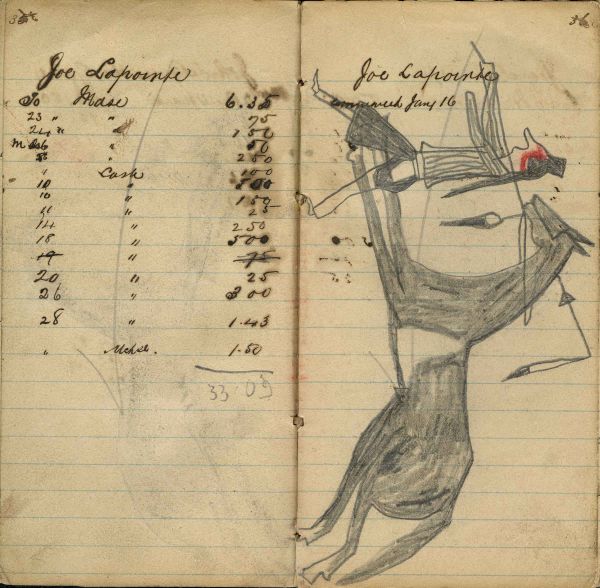 Joe Lapointe
To Mdse 6.35
23 " " 75
24 " " 1 50
" 50
" 2 50
" Cash 1 00
10 " 5 00
" 1 50
11 " 25
14 " 2 50
18 " 5 00
19 " 75
20 " 25
26 " 3 00
28 " 1.43
" Mdse. 1.50
33.03
36
Joe Lapointe
commenced Jany 16